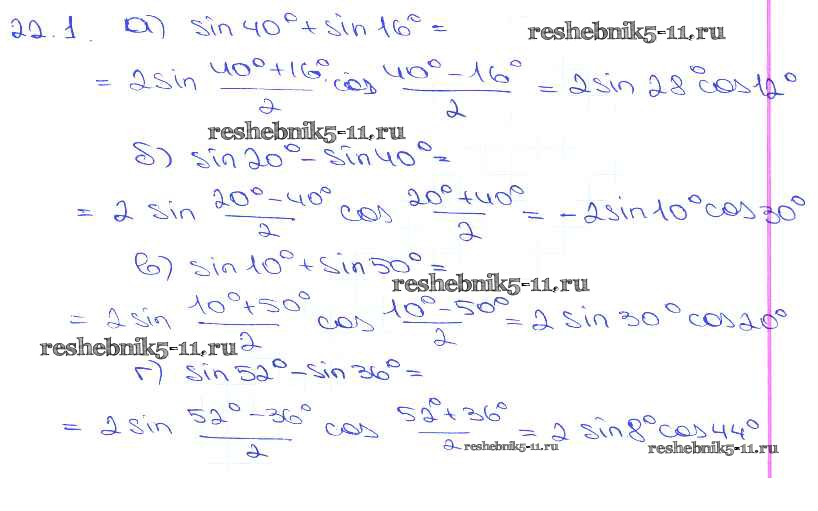 22.1. а) sin 40° + sin 16° =
reshebnik5-11.ru
= 2 sin (40° + 16°)/2 · cos (40° - 16°)/2 = 2 sin 28° cos 12°
reshebnik5-11.ru
б) sin 20° - sin 40° =
= 2 sin (20° - 40°)/2 cos (20° + 40°)/2 = -2 sin 10° cos 30°
в) sin 10° + sin 50° =
reshebnik5-11.ru
= 2 sin (10° + 50°)/2 cos (10° - 50°)/2 = 2 sin 30° cos 20°
reshebnik5-11.ru
г) sin 52° - sin 36° =
= 2 sin (52° - 36°)/2 cos (52° + 36°)/2 = 2 sin 8° cos 44°
reshebnik5-11.ru
reshebnik5-11.ru